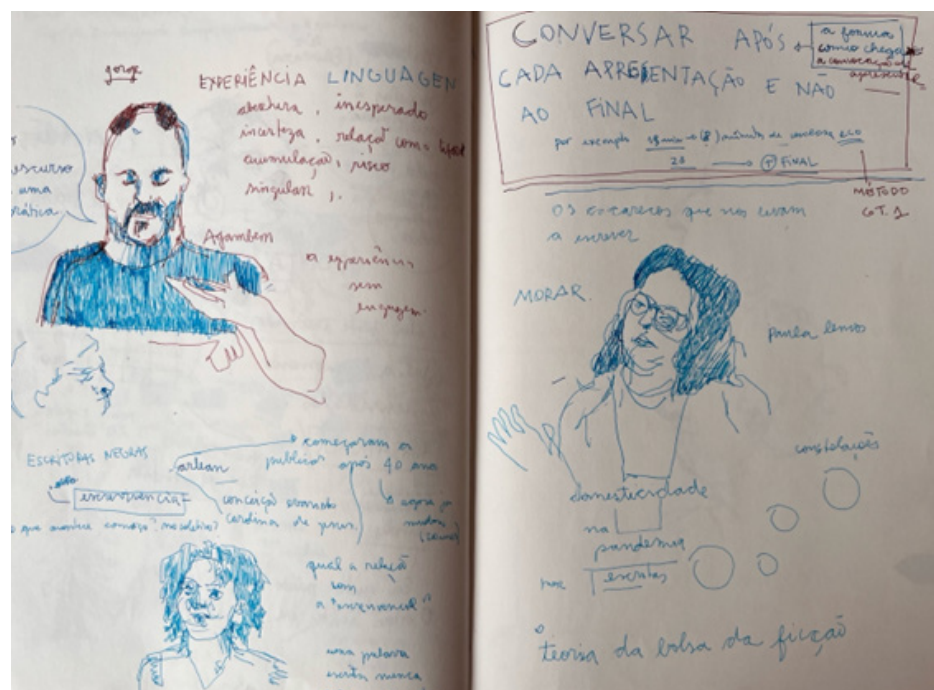 jorge
EXPERIÊNCIA LINGUAGEM
abertura, inesperado
incerteza, relação com o
acumulação, risco
singular,
escurso
uma
prática
Agamben
a experiência
sem
linguagem.
ESCRITORAS NEGRAS
arlean
começaram a
publicar após 40 anos
agora já
mudou
escrevivência
conceição evaristo
carolina de jesus
o que acontece comigo? no coletivo?
qual a relação
com
a "escrevivência"
uma palavra
escrita nunca
CONVERSAR APÓS
CADA APRESENTAÇÃO E NÃO
AO FINAL
a forma
como chega
a convocação
apresentar
por exemplo
minutos de conversa
20 FINAL
MÉTODO
GT. 1
os que nos levam
a escrever
MORAR.
paula lemos
constelações
domesticidade
na
pandemia
escritas
teoria da bolsa da ficção